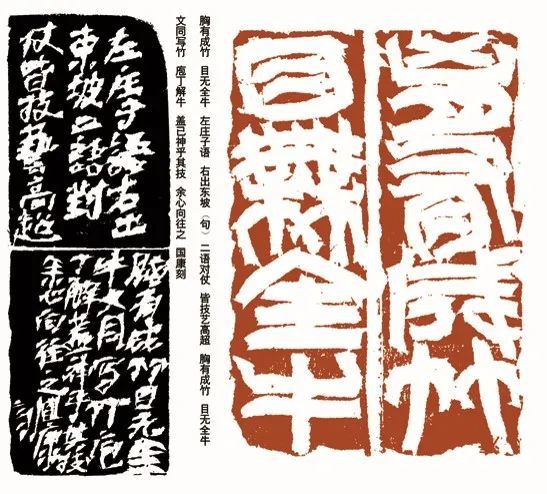 胸有成竹
目無全牛
胸有成竹 目无全牛 左庄子语 右出东坡（句） 二语对仗 皆技艺高超 胸有成竹 目无全牛
文同写竹 庖丁解牛 盖已神乎其技 余心向往之 国康刻
左庄子語右出
東坡二語對
仗皆技藝高超
胸有成竹目无全
牛文同写竹庖
丁解神乎其技
余心向往之國康